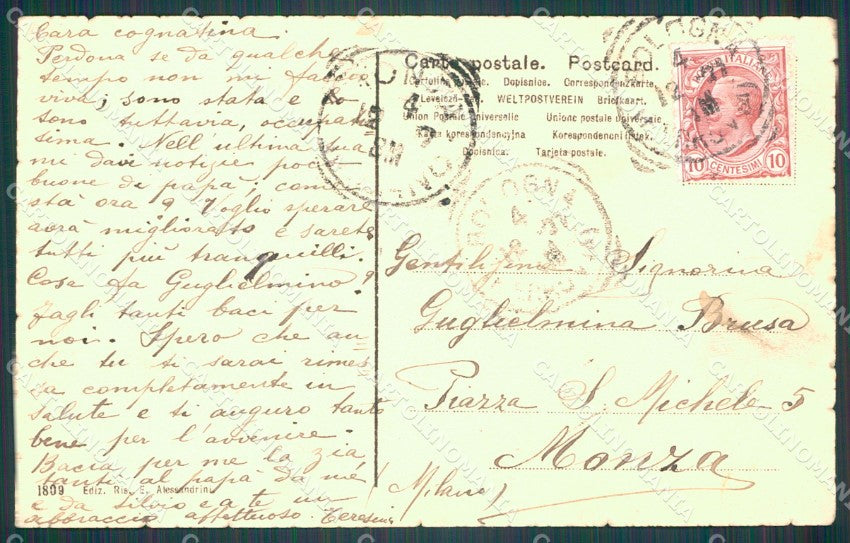 Cara cognatina.
Perdona se da qualche
tempo non mi faccio
viva; sono stata e lo
sono tuttavia, occupatis
sima. Nell' ultima tua
mi davi notizie poco
buone di papà; come
sta ora? Voglio sperare
avrà migliorato e sarete
tutti più tranquilli.
Cosa fa Guglielmino?
Fagli tanti baci per
noi. Spero che an-
che tu ti sarai rimes
sa completamente in
salute e ti auguro tanto
bene per l'avvenire.
Bacia per me la zia
tanti al papà da me
e da Silvio e a te un
abbraccio affettuoso. Teresina
1809 Ediz. Ris. E. Alessandrini
Carte postale. Postcard.
Dopisnice. Correspondenzkarte
Levelező WELTPOSTVEREIN Briefkaart.
Union Postale Universelle Unione postale universale
Karta korespondencyjna
Dopisnica. Tarjeta postale.
10 CENTESIMI 10
BOLOGNA
Gentilissima Signorina
Guglielmina Brusa
Piazza S. Michele 5
Monza
(Milano)
CARTOLINOMANIA